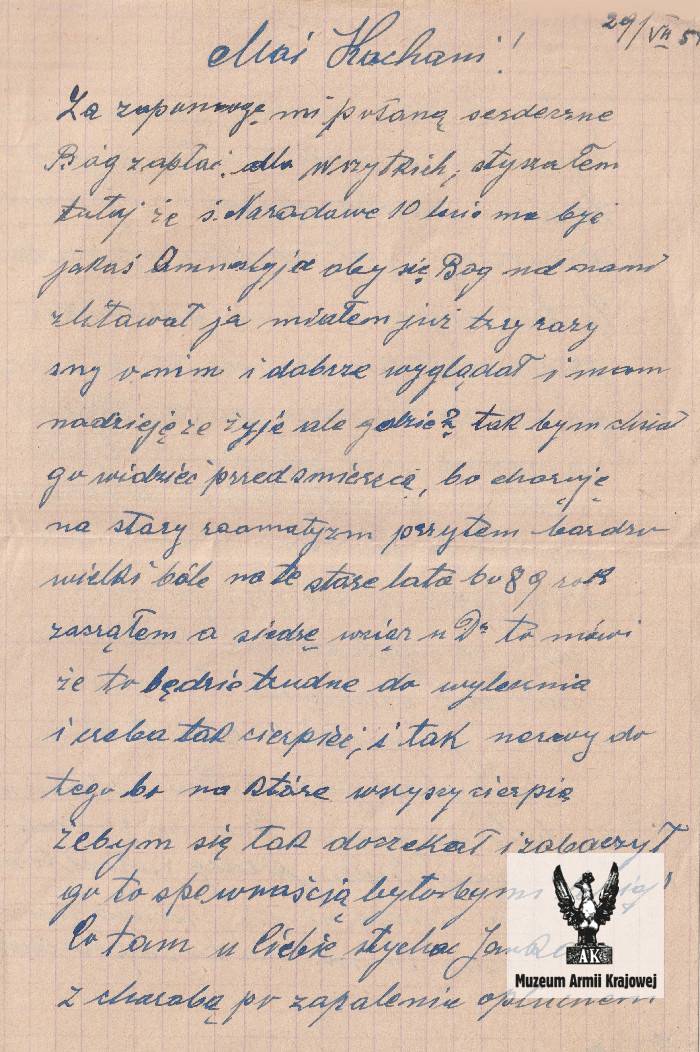 29/VII 5
Moi Kochani!
Za zapomogę mi posłaną serdeczne
Bóg zapłać, dla wszytkich, styszałem
tutaj że ś. Naradowe 10 lecie ma być
jakaś Amnestyja aby się Bóg nad nami
zlitawał ja miałem już trzy razy
sny o nim i dobrze wyglądał i mam
nadzieję ze żyje ale gdzie? tak bym chciał
go widzieć przed smiercią, bo choruję
na stary raomatyzm przytem bardzo
wielki bóle na te stare lata bo 89 rok
zaczątem a siedzę wciąz u Dr to mówi
że to będzie trudne do wylecznia
i czeba tak cierpieć, i tak nerwy do
tego bo na które wszyscy cierpią
żebym się tak doczekał i zobaczył
go to spewnością byłoby mi
Co tam u Ciebie stychać
z chorobą po zapaleniu opłucnem
AK
Muzeum Armii Krajowej